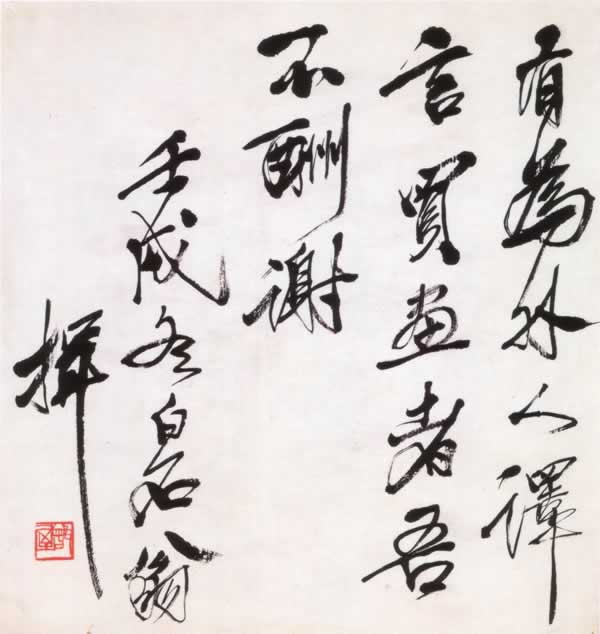 有為外人譯
言買畫者吾
不酬謝
壬戌冬白石翁
揮